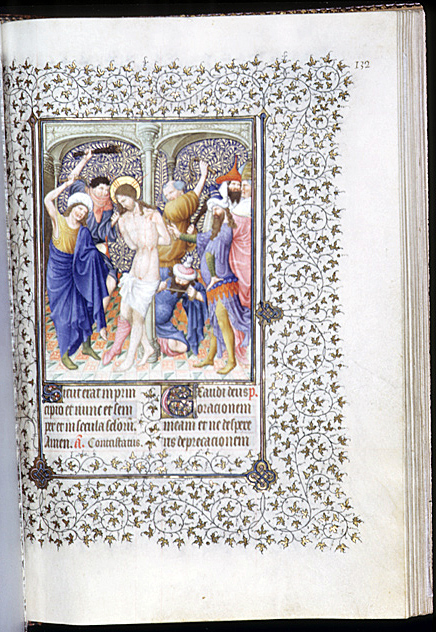 132
Sicut erat in prin
cipio et nunc et sem
per et in secula
Amen. a. Contristatus.
Exaudi deus p.
orationem
meam et ne despexe
ris deprecationem